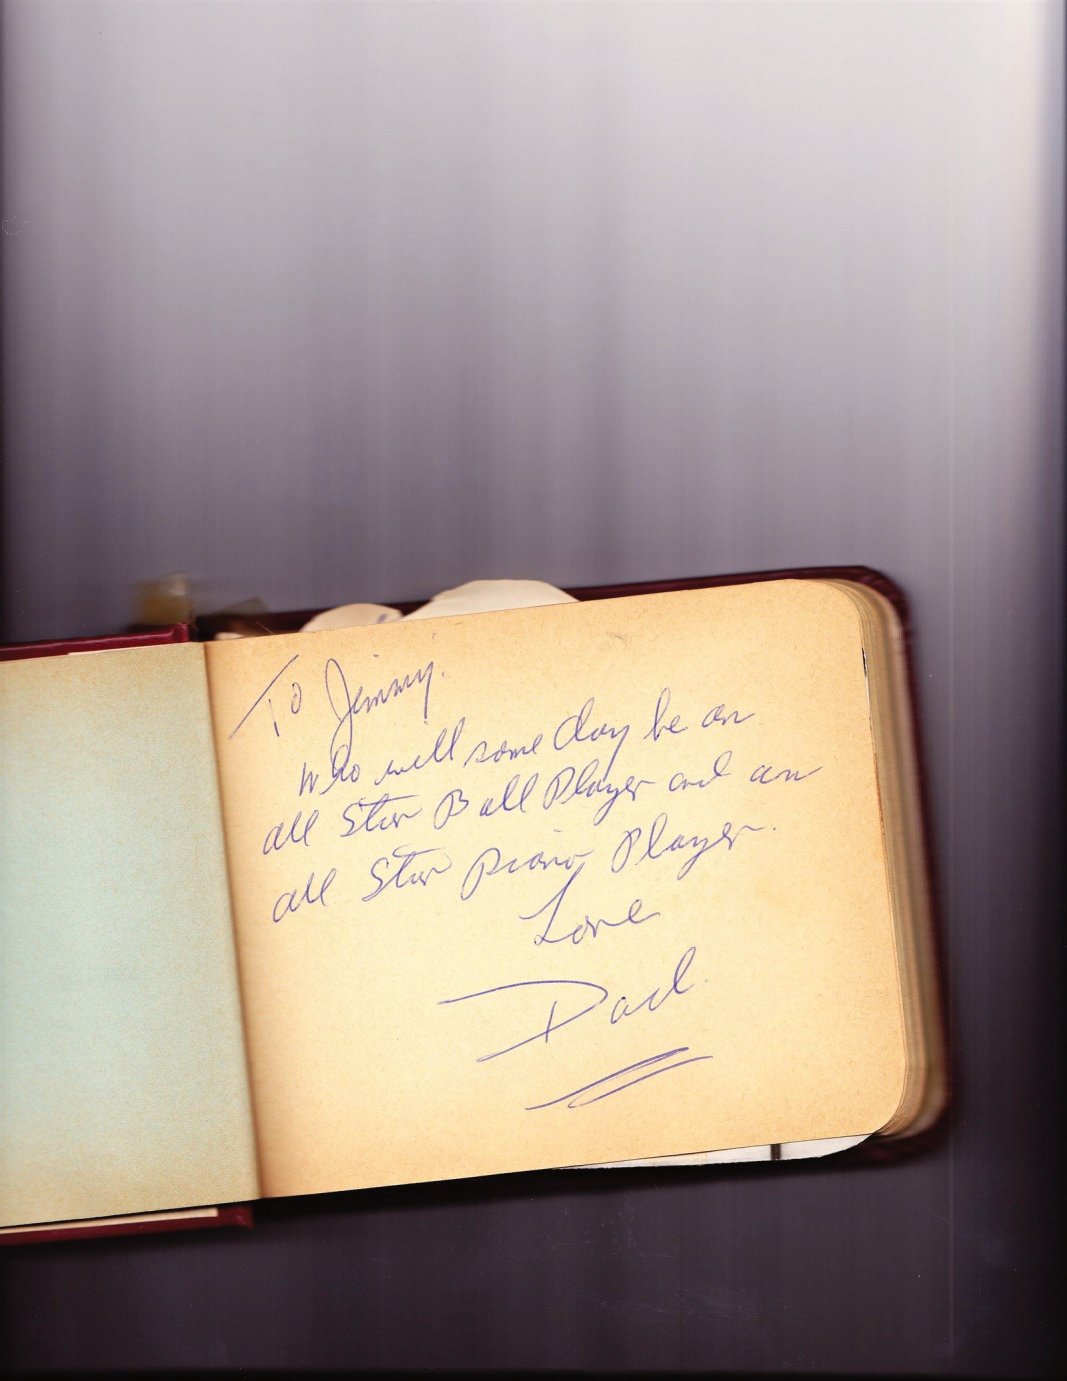 To Jimmy.
Who will some day be an
all Star Ball Player and an
all Star piano Player.
Love
Dad.